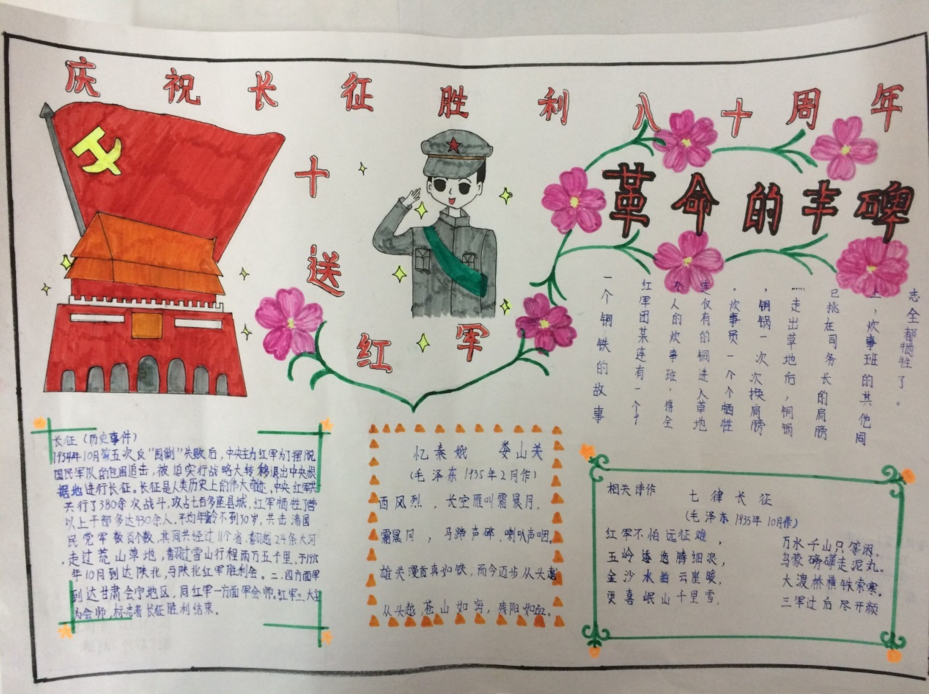 庆祝长征胜利八十周年
十送红军
革命的丰碑
一个钢铁的故事
红军团某连有一个
人的炊事班，将全
连仅有的铜进入草地
炊事员一个个牺牲
铜锅一次次换肩膀
走出草地后，铜锅
已挑在司务长的肩膀
上，炊事班的其他同
志全都牺牲了。
长征（历史事件）
1934年10月第五次反“围剿”失败后，中央主力红军为了摆脱
国民军队的包围追击，被迫实行战略大转移退出中央根
据地进行长征。长征是人类历史上的伟大奇迹，中央红军共
共行了380余次战斗，攻占七百多座县城，红军牺牲了营
以上干部多达430余人，平均年龄不到30岁，共击溃国
民党军数百个数，其间共经过11个省，翻越
走过荒山草地，翻过雪山行程两万五千里，于1935
年10月到达陕北，与陕北红军胜利会。二、四方面军
到达甘肃会宁地区，同红军一方面军会师。红军三大主
力会师，标志着长征胜利结束。
忆秦娥 娄山关
（毛泽东1935年2月作）
西风烈，长空雁叫霜晨月，
霜晨月，马蹄声碎，喇叭声咽。
雄关漫道真如铁，而今迈步从头越
从头越，苍山如海，残阳如血。
相关诗作 七律长征
（毛泽东1935年10月作）
红军不怕远征难，万水千山只等闲。
五岭逶迤腾细浪，乌蒙磅礴走泥丸。
金沙水拍云崖暖，大渡桥横铁索寒。
更喜岷山千里雪，三军过后尽开颜